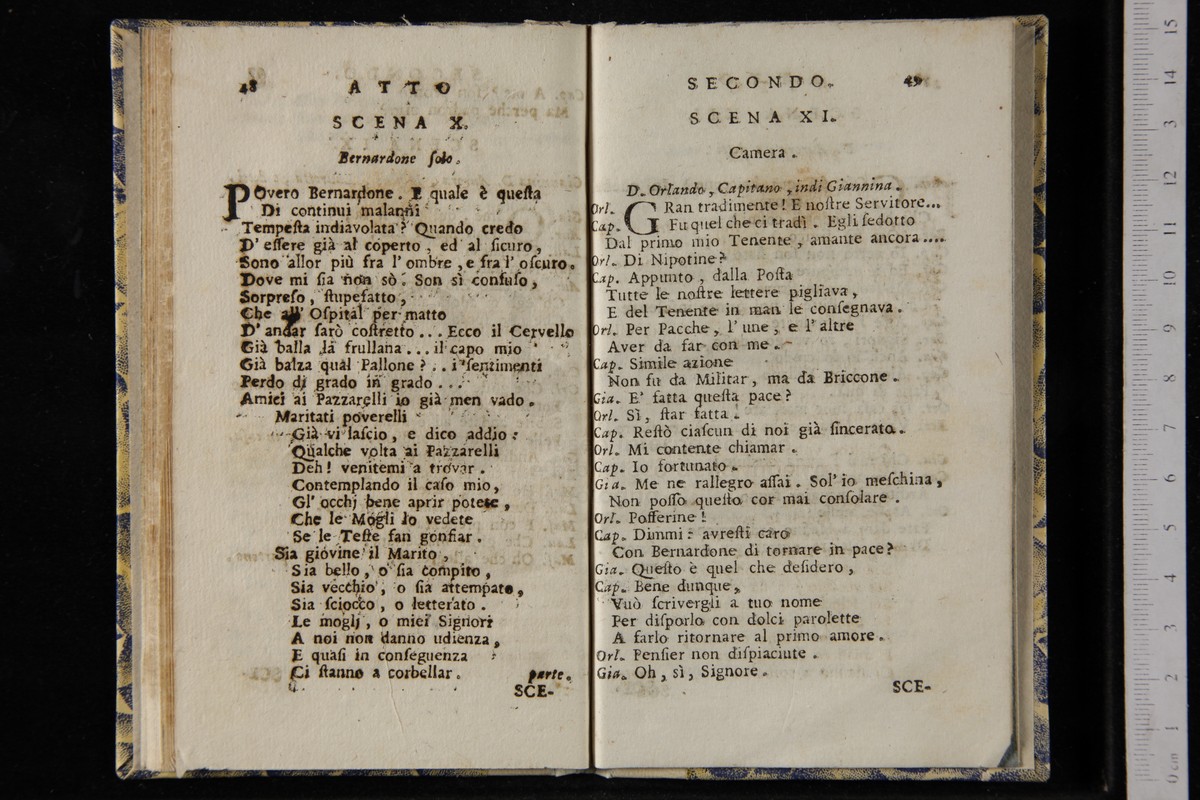 48 ATTO
SCENA X.
Bernardone ſolo.
POvero Bernardone. E quale è queſta
Di continui malanni
Tempeſta indiavolata? Quando credo
D' eſſere già al coperto, ed al ſicuro,
Sono allor più fra l' ombre, e fra l' oſcuro.
Dove mi ſia non sò. Son sì confuſo,
Sorpreſo, ſtupefatto,
Che all' Oſpital per matto
D' andar farò coſtretto... Ecco il Cervello
Già balla la frullana... il capo mio
Già balza qual Pallone?.. i ſentimenti
Perdo di grado in grado...
Amici ai Pazzarelli io già men vado.
Maritati poverelli
Già vi laſcio, e dico addio:
Qualche volta ai Pazzarelli
Deh! venitemi a trovar.
Contemplando il caſo mio,
Gl' occhj bene aprir potete,
Che le Mogli lo vedete
Se le Teſte fan gonfiar.
Sia giovine il Marito,
Sia bello, o ſia compito,
Sia vecchio, o ſia attempato,
Sia ſciocco, o letterato.
Le moglj, o miei Signori
A noi non danno udienza,
E quaſi in conſeguenza
Ci ſtanno a corbellar. parte.
SCE-
SECONDO. 49
SCENA XI.
Camera.
D. Orlando, Capitano, indi Giannina.
Orl. GRan tradimente! E noſtre Servitore...
Cap. Fu quel che ci tradì. Egli ſedotto
Dal primo mio Tenente, amante ancora....
Orl. Di Nipotine?
Cap. Appunto, dalla Poſta
Tutte le noſtre lettere pigliava,
E del Tenente in man le conſegnava.
Orl. Per Pacche, l' une, e l' altre
Aver da far con me.
Cap. Simile azione
Non fu da Militar, ma da Briccone.
Gia. E' fatta queſta pace?
Orl. Sì, ſtar fatta.
Cap. Reſtò ciaſcun di noi già ſincerato.
Orl. Mi contente chiamar.
Cap. Io fortunato.
Gia. Me ne rallegro aſſai. Sol' io meſchina,
Non poſſo queſto cor mai conſolare.
Orl. Poſſerine!
Cap. Dimmi: avreſti caro
Con Bernardone di tornare in pace?
Gia. Queſto è quel che deſidero,
Cap. Bene dunque,
Vuò ſcrivergli a tuo nome
Per diſporlo con dolci parolette
A farlo ritornare al primo amore.
Orl. Penſier non diſpiaciute.
Gia. Oh, sì, Signore.
SCE-
0 cm 1 2 3 4 5 6 7 8 9 10 11 12 13 14 15